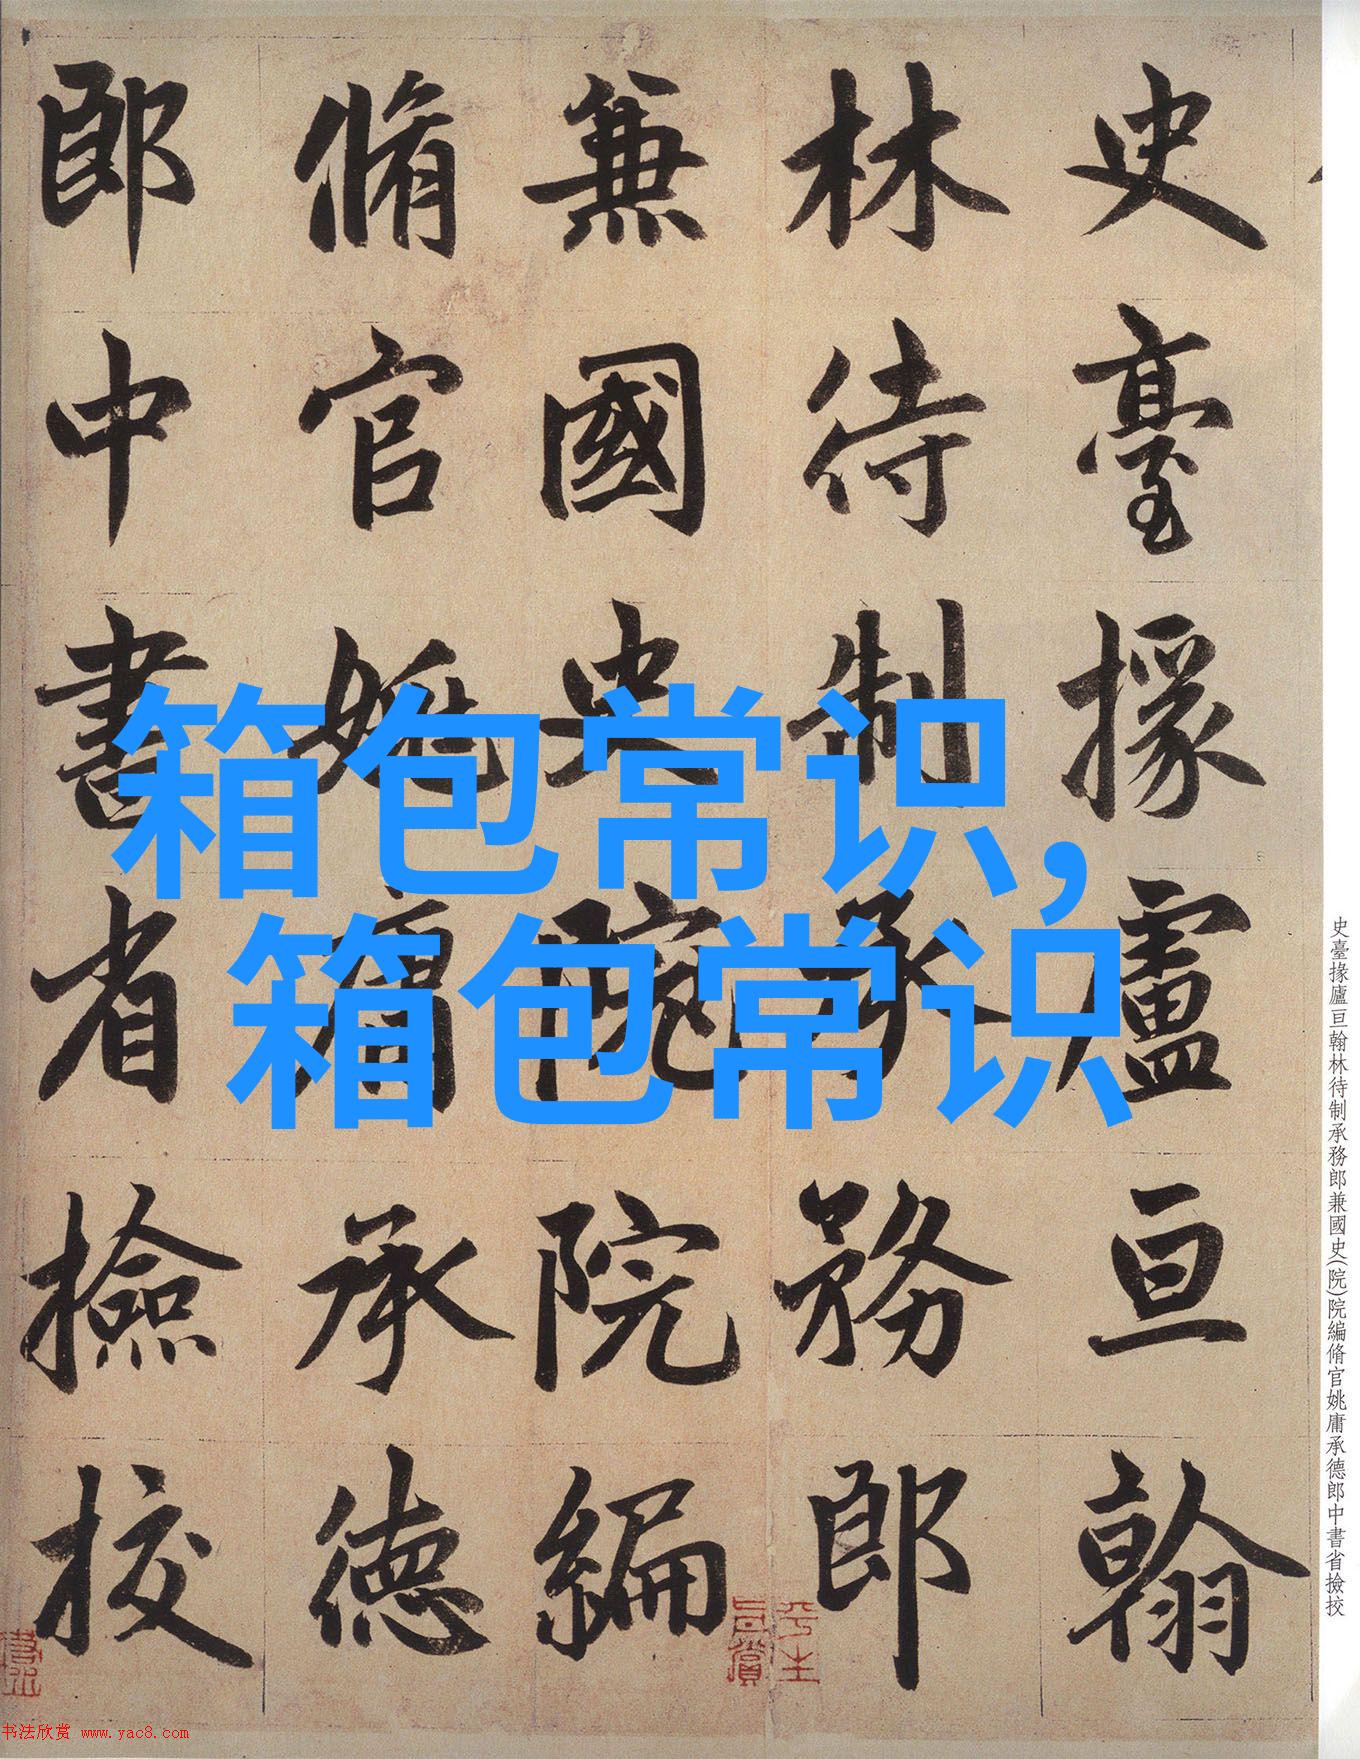 史臺掾盧亘翰
林待制承務郎
兼國史院院編
脩官姚庸承德
郎中書省撿挍
箱包常识,
箱包常识
史臺掾廬亘翰林待制承務郎兼國史(院)院編脩官姚庸承德郎中書省撿挍
平生
书法欣赏 www.yac8.com